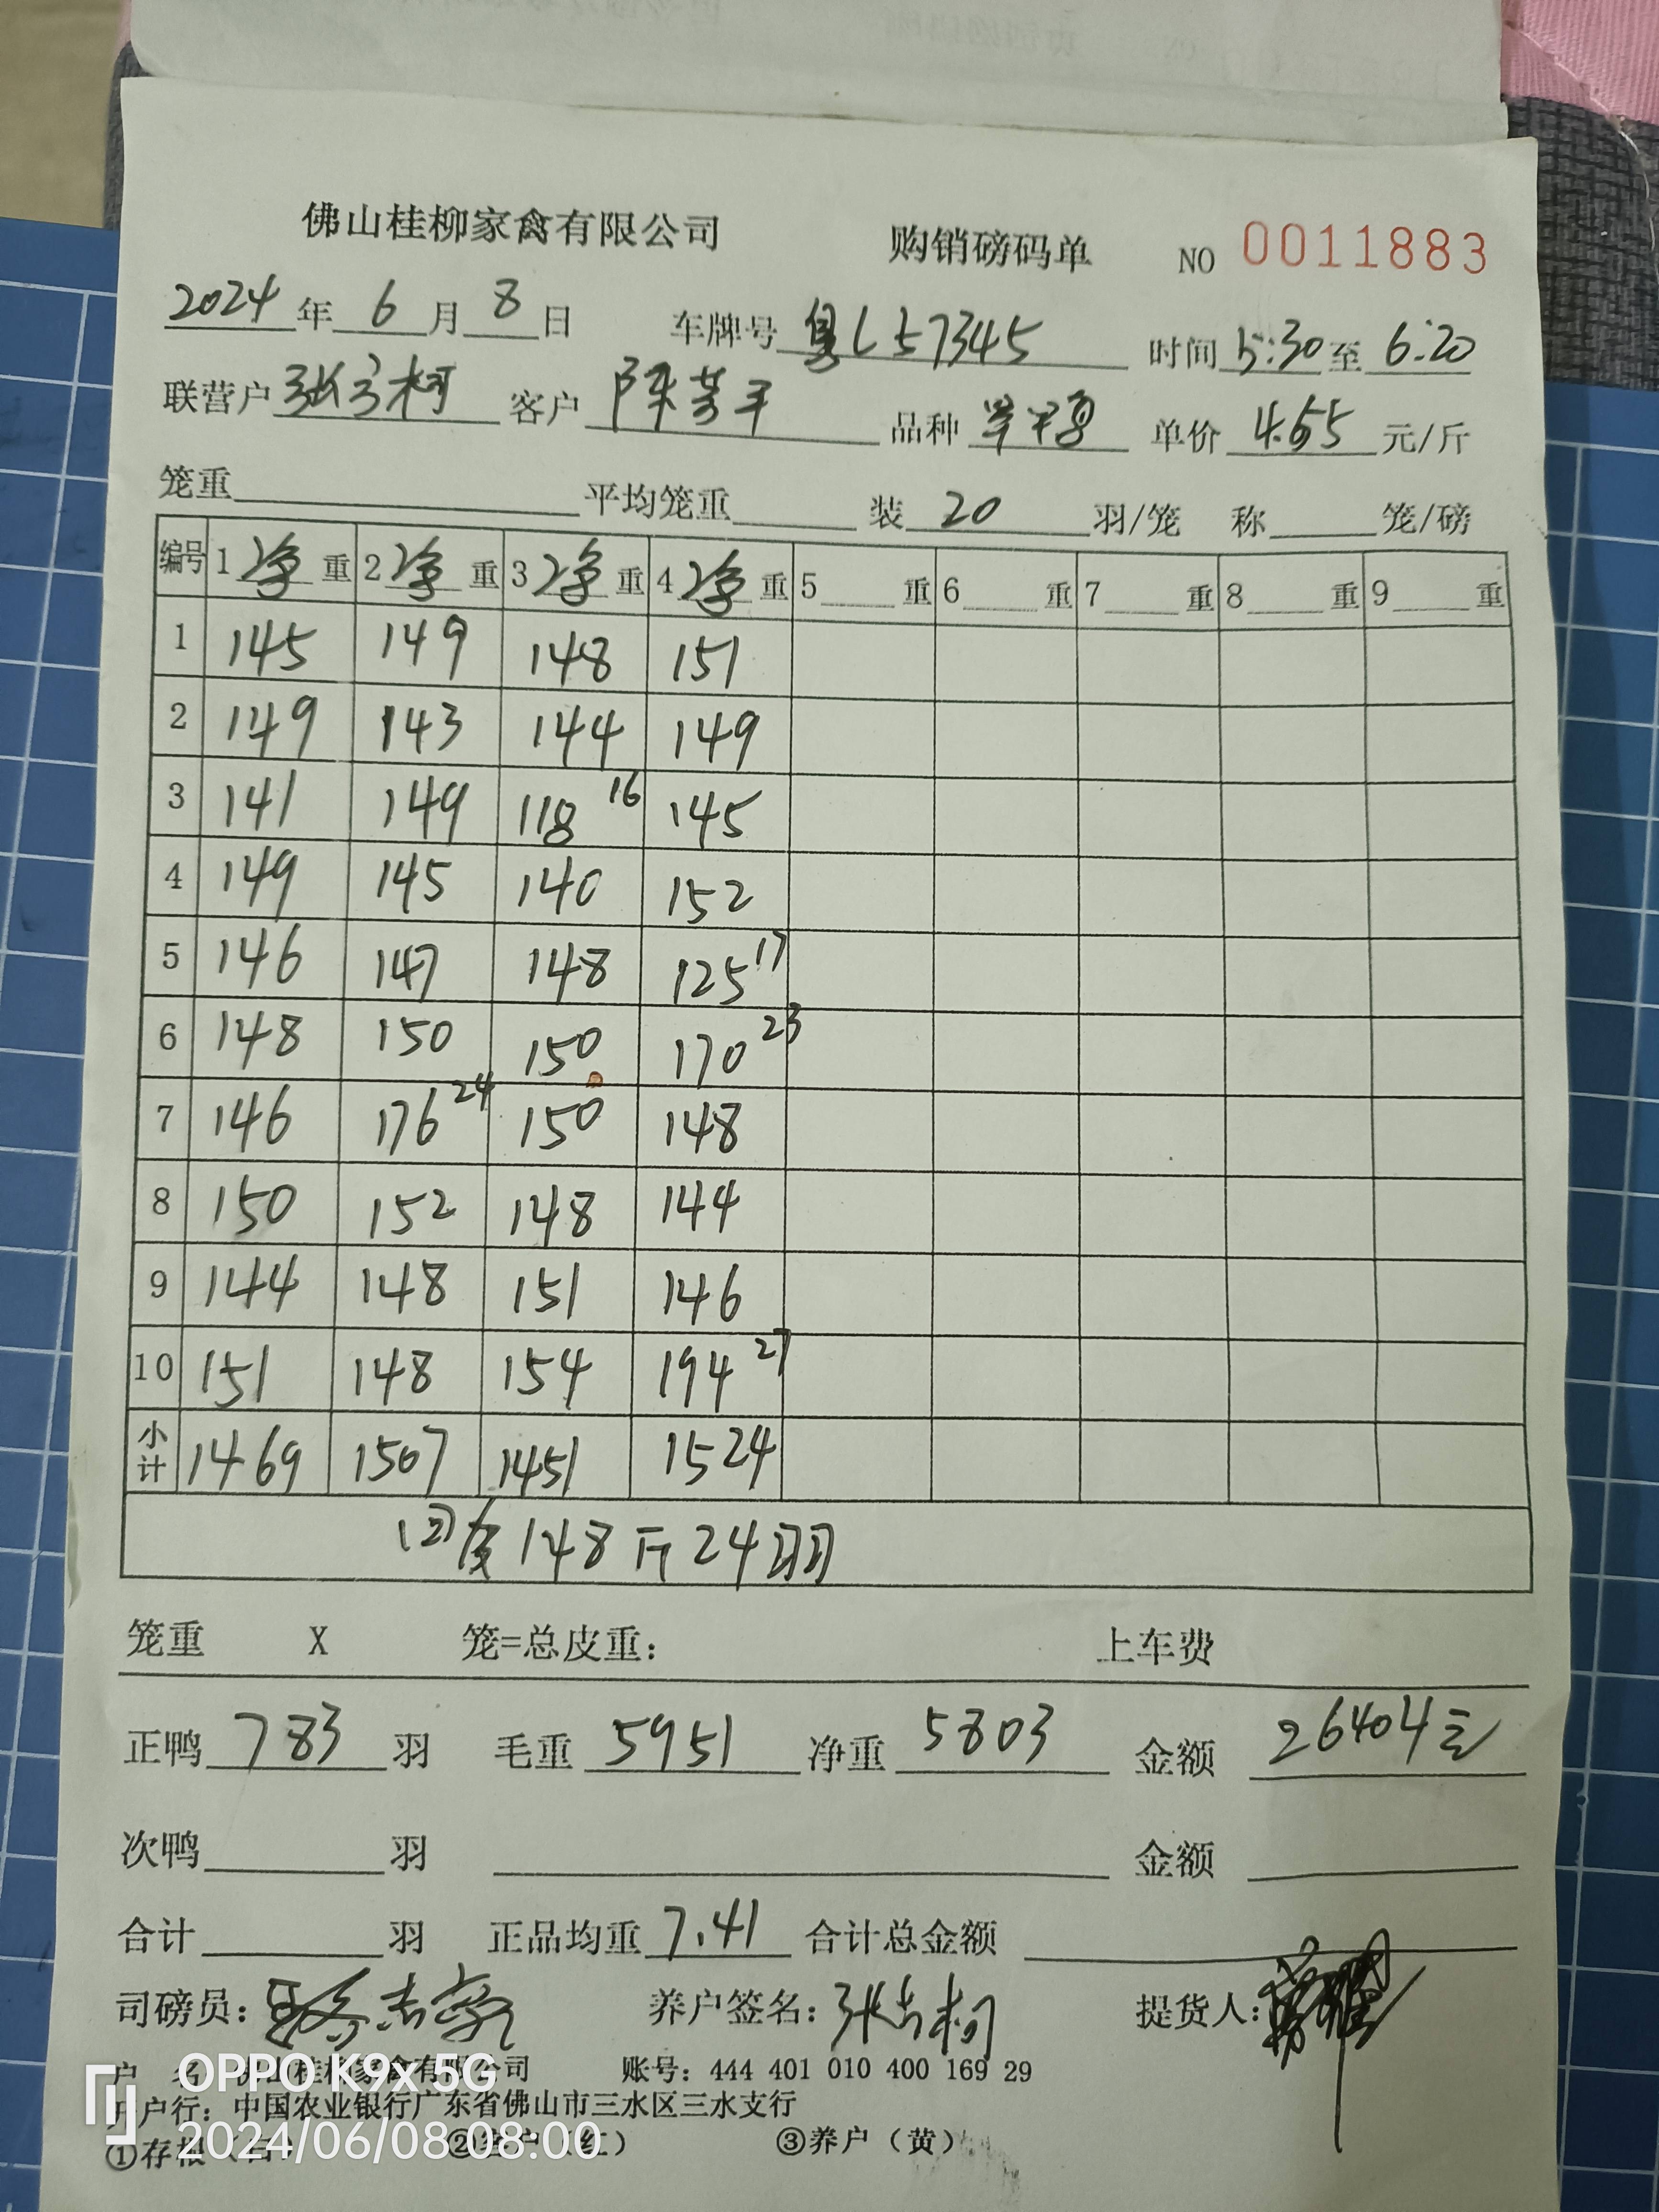 佛山桂柳家禽有限公司 购销磅码单 NO 0011883
2024年 6 月 8 日 车牌号 粤L57345 时间 5:30 至 6:20
联营户 客户 陈芳平 品种 单价 4.65 元/斤
笼重 平均笼重 装 20 羽/笼 称 笼/磅
编号 1 净 重 2 净 重 3 净 重 4 净 重 5 重 6 重 7 重 8 重 9 重
1 145 149 148 151
2 149 143 144 149
3 141 149 118 16 145
4 149 145 140 152
5 146 147 148 125 17
6 148 150 150 170 23
7 146 176 24 150 148
8 150 152 148 144
9 144 148 151 146
10 151 148 154 194 27
小计 1469 1507 1451 1524
回皮148斤24羽
笼重 X 笼=总皮重: 上车费
正鸭 783 羽 毛重 5951 净重 5803 金额 26404元
次鸭 羽 金额
合计 羽 正品均重 7.41 合计总金额
司磅员: 养户签名: 提货人:
户 名 佛山桂柳家禽有限公司 账号: 444 401 010 400 169 29
开户行: 中国农业银行广东省佛山市三水区三水支行
①存根（白） ②客户（红） ③养户（黄）
OPPO K9x 5G
2024/06/08 08:00